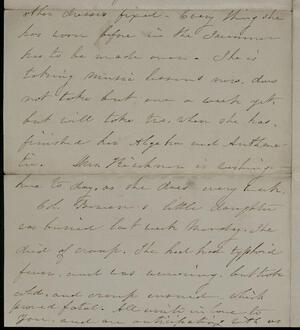 other dresses fixed. Every thing she
has worn before in the Summer
has to be made over. She is
taking music lessons now, does
not take but one a week yet,
but will take two, when she has
finished her Algebra and Arithme-
tic. Mrs. is washing
here to day, as she does every week.
Col. little daughter
was buried last week Monday. She
died of croup. She had had typhoid
fever, and was recovering, but took
cold, and croup ensued which
proved fatal. All unite in love to
You, and are anticipating with us